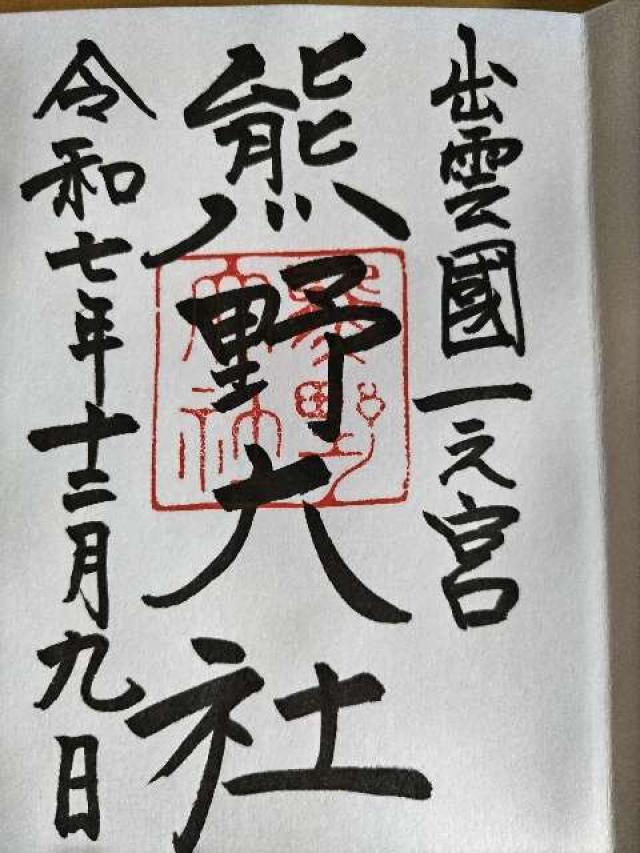 出雲國一之宮
熊野大社
令和七年十二月九日